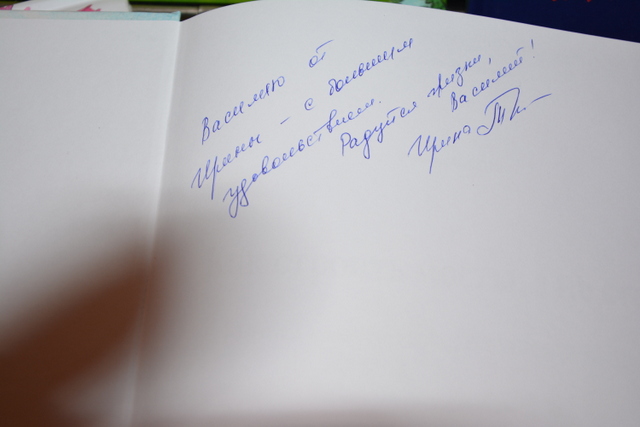 Василию от
Ирины – с большим
удовольствием.
Радуйся жизни,
Василий!
Ирина